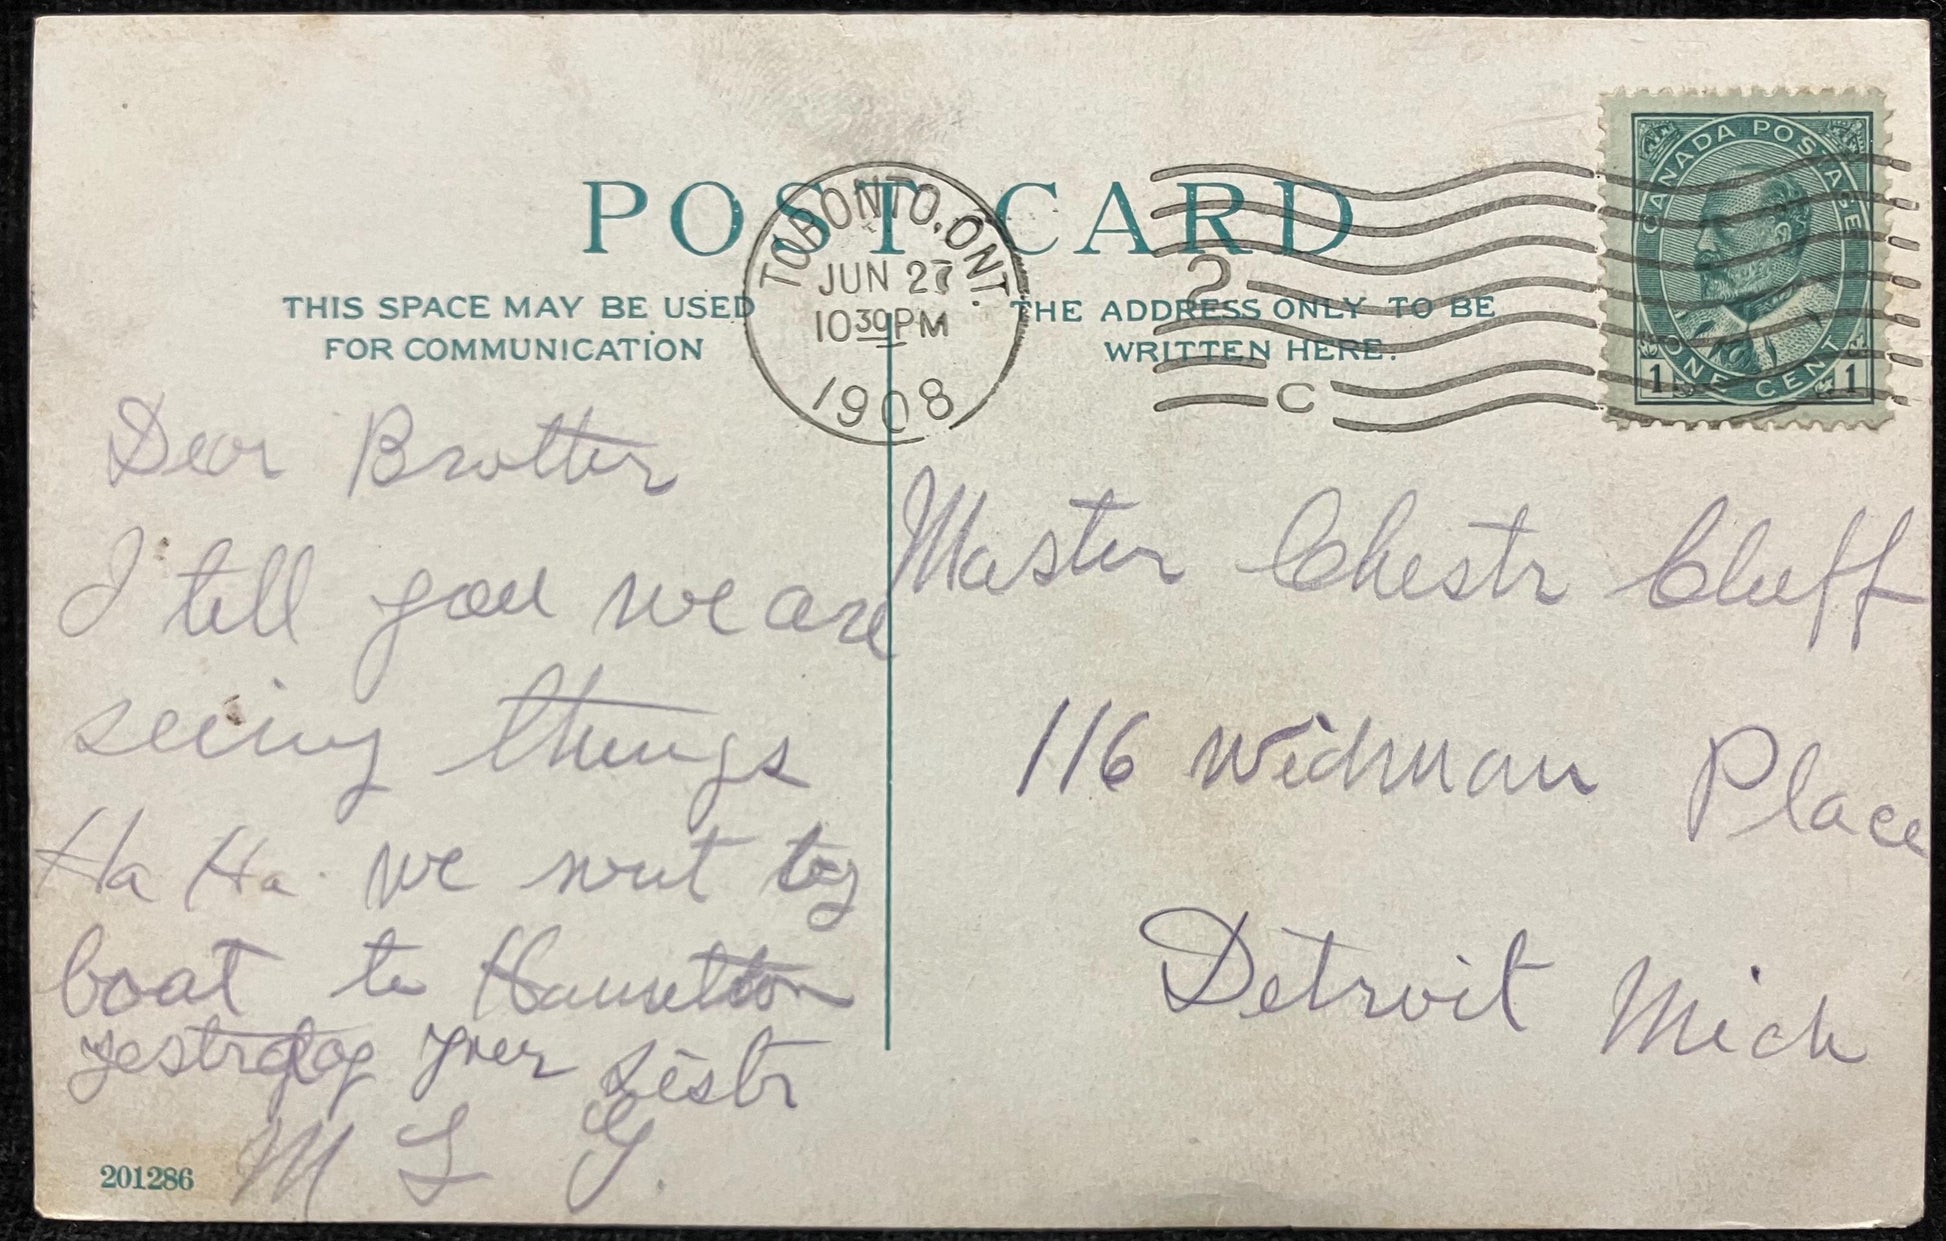 POST CARD
TORONTO, ONT.
JUN 27
10 30 PM
1908
2
C
CANADA POSTAGE
ONE CENT
1 1
THIS SPACE MAY BE USED
FOR COMMUNICATION
THE ADDRESS ONLY TO BE
WRITTEN HERE.
Dear Brother
I tell you we are
seeing things
Ha Ha. we went by
boat to Hamilton
yestrday your Sistr
M L G.
Master Chestr Cluff
116 Widman Place
Detroit Mich
201286